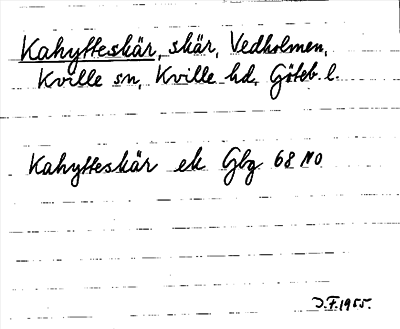 Kahytteskär, skär, Vedholmen,
Kville sn, Kville hd, Göteb. l.
Kahytteskär ek Gbg 68 NO
J.F. 1955.